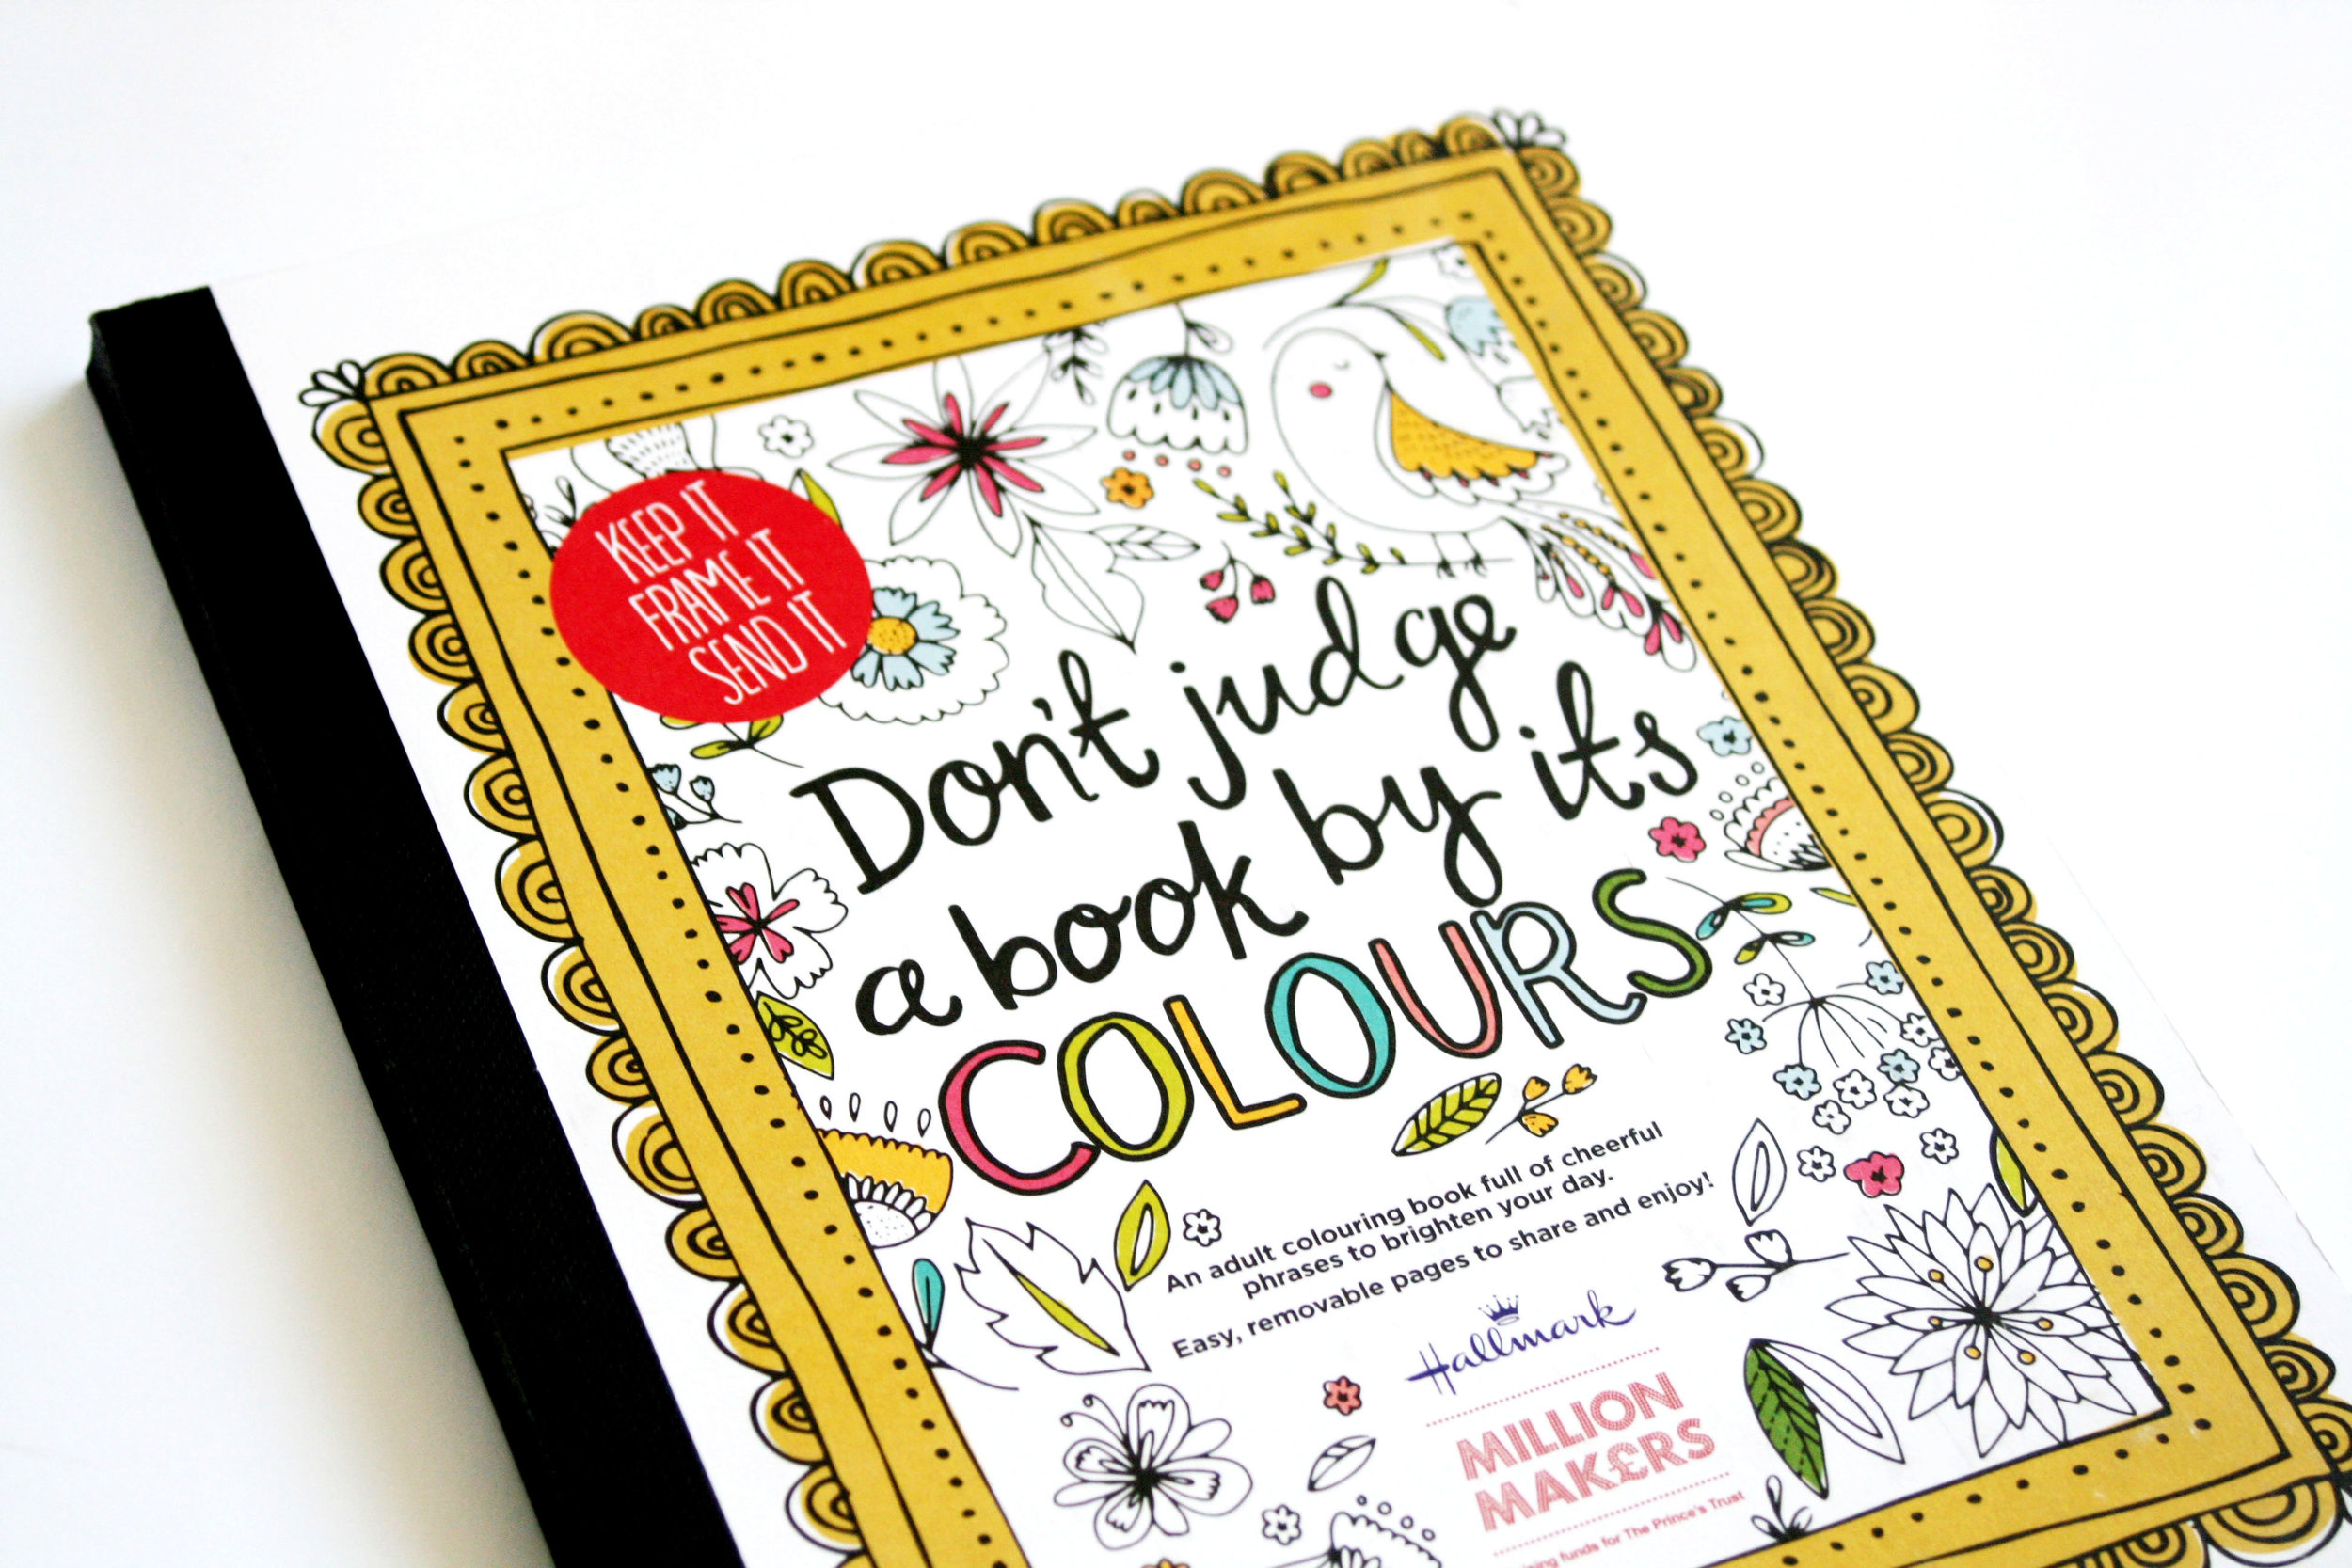 KEEP IT
FRAME IT
SEND IT
Don't judge
a book by its
COLOURS
An adult colouring book full of cheerful
phrases to brighten your day.
Easy, removable pages to share and enjoy!
Hallmark
MILLION
MAK£RS
funds for The Prince's Trust